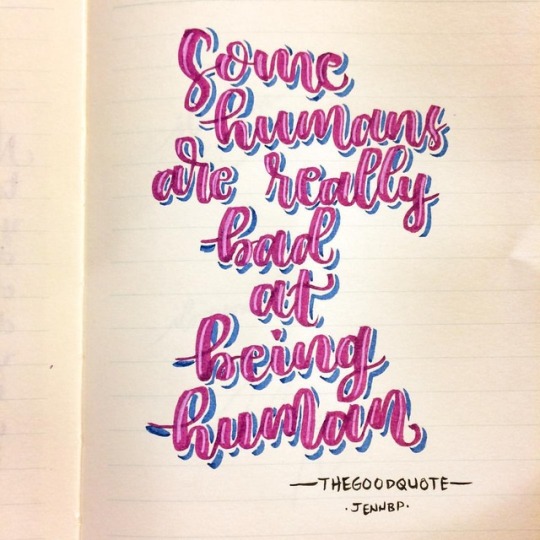 Some
humans
are really
bad
at
being
human
—THEGOODQUOTE—
·JENNBP·